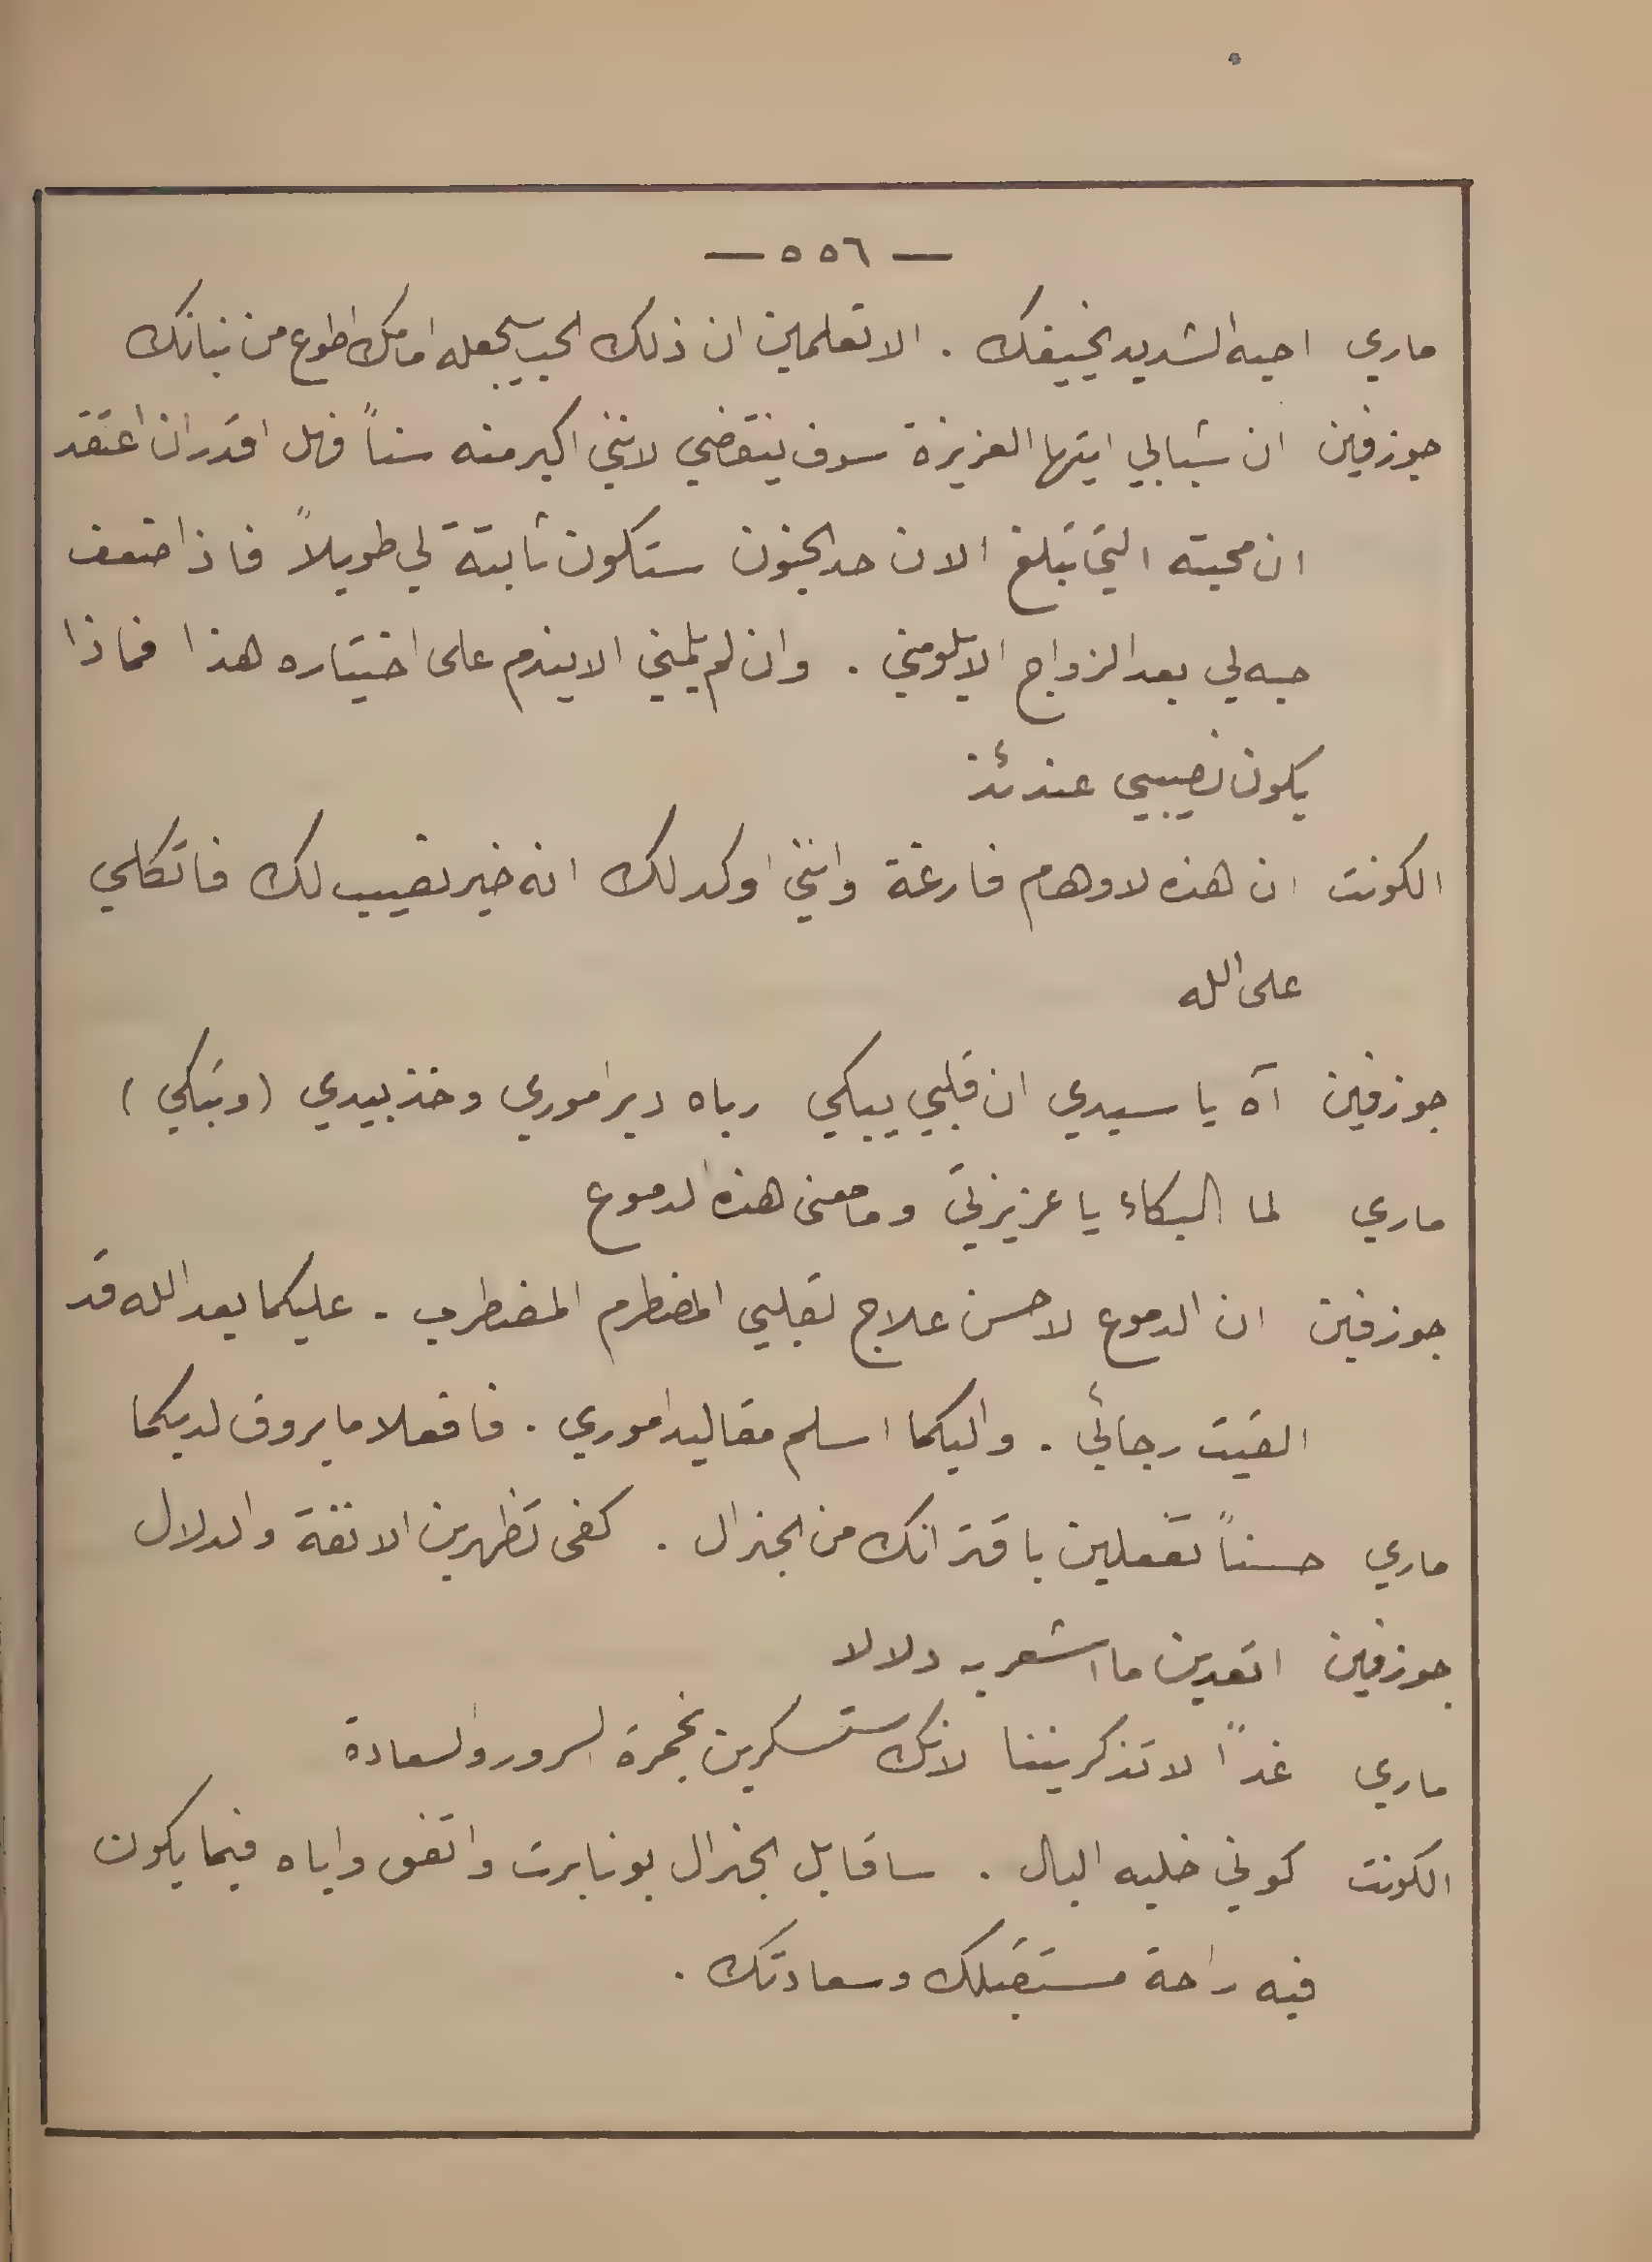 — ٥٥٦ —
ماري احبه الشديد يخيفك . الا تعلمين ان ذلك الحب سيجعله امامك اطوع من بنانك
جوزفين ان شبابي ايتها العزيزة سوف ينقضي لانني اكبر منه سناً فهل اقدر ان اعتقد
ان محبته التي تبلغ الان حد الجنون ستكون ثابتة لي طويلاً فاذا ضعف
حبه لي بعد الزواج الا يلومني . وان لم يلمني الا يندم على اختياره هذا فماذا
يكون نصيبي عندئذ
الكونت ان هذه لاوهام فارغة وانني اوكد لك انه خير نصيب لك فاتكلي
على الله
جوزفين آه يا سيدي ان قلبي يبكي رباه دبر اموري وخذ بيدي (وتبكي)
ماري لما البكاء يا عزيزتي وما معنى هذه الدموع
جوزفين ان الدموع لاحسن علاج لقلبي المضطرم المضطرب . عليكما بعد الله قد
القيت رجائي . واليكما اسلم مقاليد اموري . فافعلا ما يروق لديكما
ماري حسناً تفعلين باقترانك من الجنرال . كفى تظهرين الانفة والدلال
جوزفين اتعدين ما اشعر به دلالا
ماري غداً لا تذكريننا لانك ستسكرين بخمرة السرور والسعادة
الكونت كوني خليه البال . ساقابل الجنرال بونابرت واتفق واياه فيما يكون
فيه راحة مستقبلك وسعادتك .